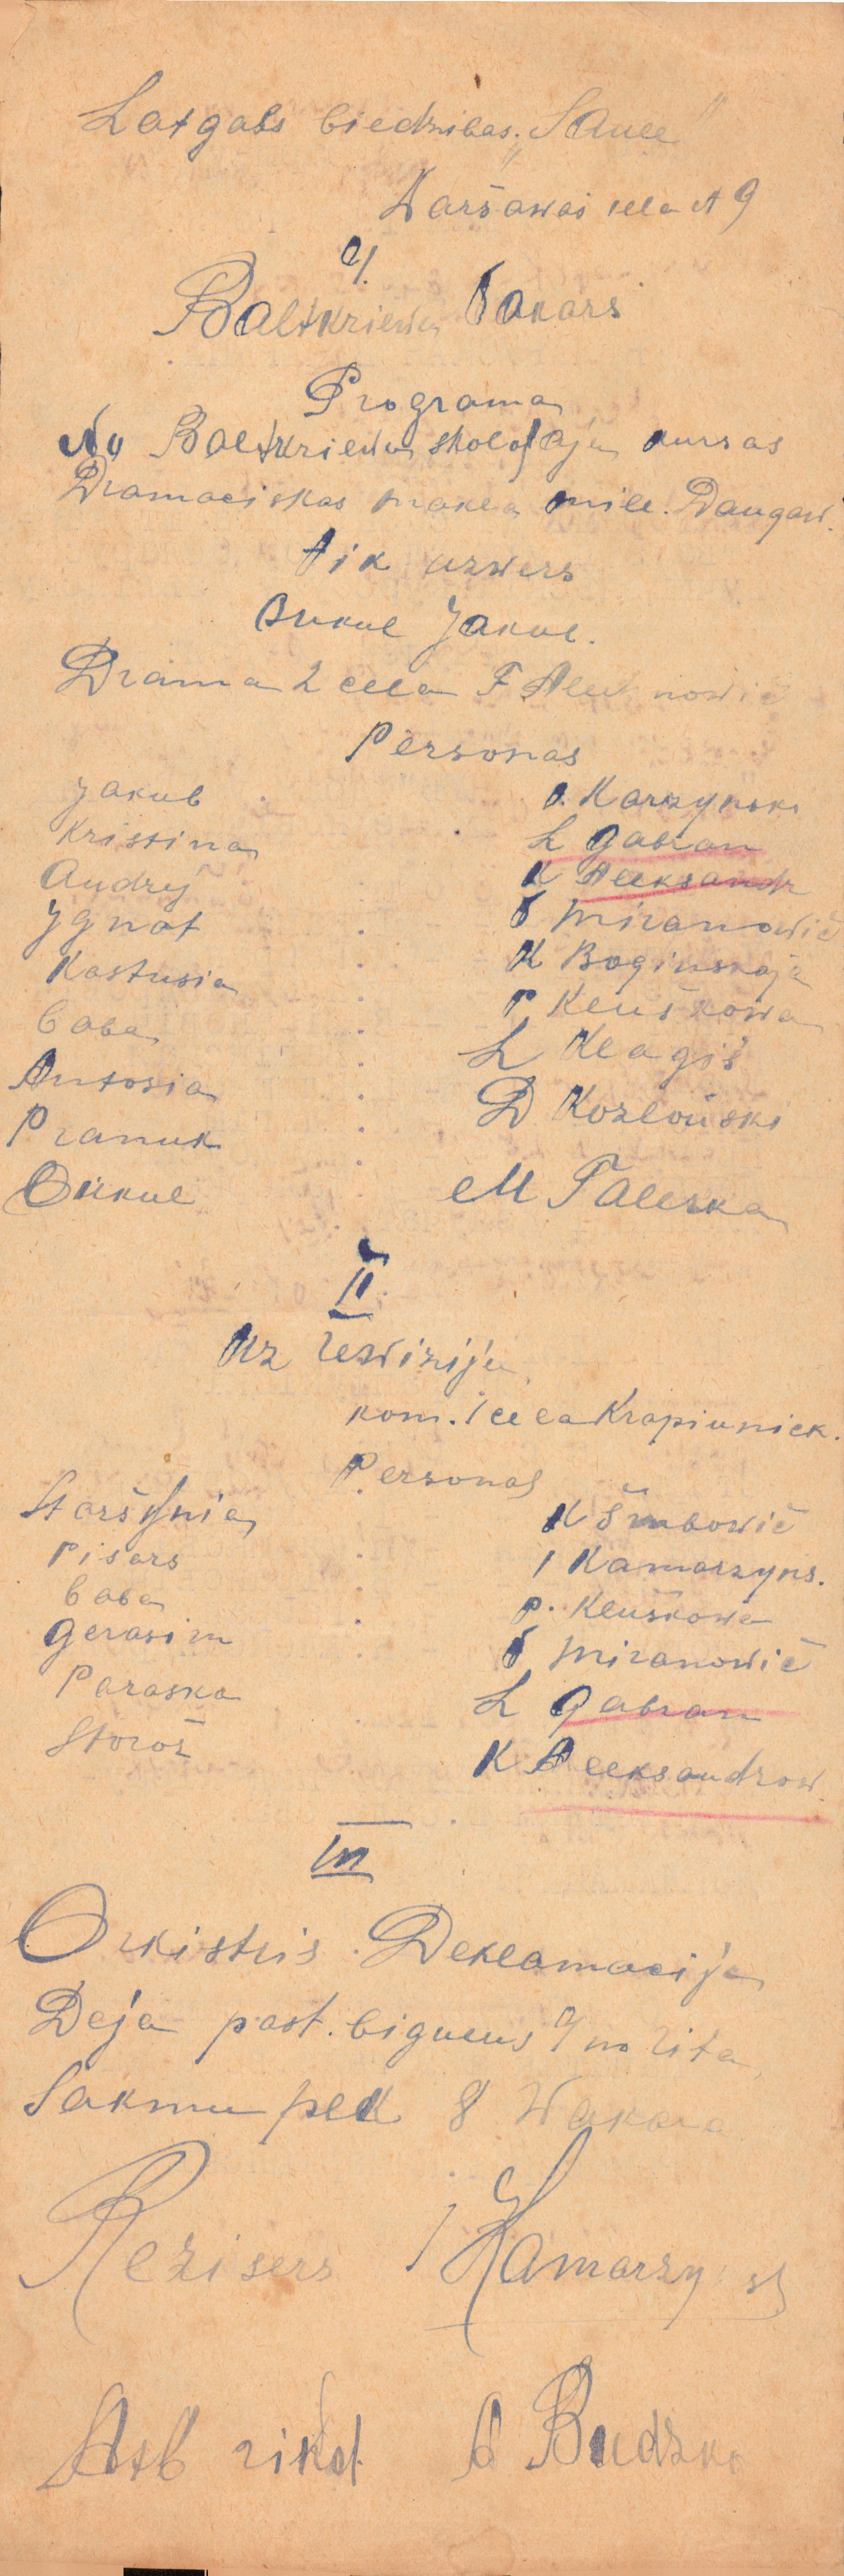 Latgals biedribas „Saule"
Waršawas iela № 9
Baltkriewu Vakars
Programa
No Baltkriewu skolotāju kursas
Dramaciskas Daugaw.
tik uzwers
Bukul Jakul.
Drama 2 cela F Aleknowič
Personas
Jakub . Karzynski
Kristina . L Gabran
Andrej . K Aleksandr
Ignat . V Miranowič
Kastusia . K Boginskaja
Baba . P. Kluškowa
Antosia . L Klagiš
Pranuk . D Kozloŭski
Bukul . M Taleska
II
Uz rewiziju
kom. 1 cela Krapiwnick.
Personas
Staršynia . K Šimbowič
Pisars . I Kamarzyns.
Baba . P. Kluškowa
Gerasim . V Miranowič
Paraska . L Gabran
Storož K Aleksandrow.
III
Orkistris. Deklamacija
Deja past. no rita
Sakmu plk 8 Wakara
Režisers J Kamarzy sk
Atb rikot. A Budzko